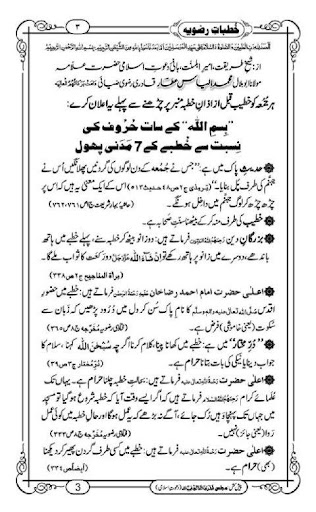 خطبات رضویہ
۳
اَلْحَمْدُ لِلّٰهِ رَبِّ الْعٰلَمِيْنَ وَالصَّلٰوةُ وَالسَّلَامُ عَلٰی سَيِّدِ الْمُرْسَلِيْنَ اَمَّا بَعْدُ فَاَعُوْذُ بِاللّٰهِ مِنَ الشَّيْطٰنِ الرَّجِيْمِ بِسْمِ اللّٰهِ الرَّحْمٰنِ الرَّحِيْمِ
از: شیخ طریقت، امیر اہلسنت، بانی دعوت اسلامی حضرت علامہ
مولانا ابوبلال محمد الیاس عطار قادری رضوی ضیائی
ہر جمعہ کو خطیب قبل از اذانِ خطبہ منبر پر چڑھنے سے پہلے یہ اعلان کرے:
”بِسْمِ اللّٰه“ کے سات حُرُوف کی
نسبت سے خطبے کے 7 مَدَنی پھول
حدیثِ پاک میں ہے: ”جس نے جُمُعہ کے دن لوگوں کی گردنیں پھلانگیں اُس نے
جہنم کی طرف پُل بنایا۔“ (ترمذی ج۲ ص۴۸ حدیث ۵۱۳) اس کے ایک معنی یہ ہیں کہ اس پر
چڑھ چڑھ کر لوگ جہنم میں داخل ہونگے۔ (حاشیہ بہارِ شریعت ج۱ ص ۷۶۱، ۷۶۲)
خطیب کی طرف منہ کر کے بیٹھنا سنتِ صحابہ ہے۔
بزرگانِ دین فرماتے ہیں: دو زانو بیٹھ کر خطبہ سنے، پہلے خطبے میں ہاتھ
باندھے، دوسرے میں زانو پر ہاتھ رکھے تو ان شاءاللہ دو رَکعت کا ثواب ملے گا۔
(مراٰۃ المناجیح ج۲ ص۳۳۸)
اعلٰی حضرت امام احمد رضا خان فرماتے ہیں: خطبے میں حضورِ
اقدس صلی اللہ تعالی علیہ وسلم کا نامِ پاک سُن کر دل میں دُرُود پڑھیں کہ زَبان سے
سکوت (یعنی خاموشی) فرض ہے۔ (فتاوی رضویہ مُخَرَّجہ ج۸ ص۳۶۵)
”دُرِّ مختار“ میں ہے: خطبے میں کھانا پینا، کلام کرنا اگرچِہ سُبْحٰنَ اللّٰه کہنا، سلام کا
جواب دینا یا نیکی کی بات بتانا حرام ہے۔ (دُرِّ مُختار ج۳ ص۳۹)
اعلٰی حضرت فرماتے ہیں: بحالتِ خطبہ چلنا حرام ہے۔ یہاں تک
عُلَمائے کرام فرماتے ہیں کہ اگر ایسے وقت آیا کہ خطبہ شروع ہو گیا تو مسجد
میں جہاں تک پہنچا وہیں رُک جائے، آگے نہ بڑھے کہ یہ عمل ہوگا اور حالِ خطبہ میں کوئی عمل
روا (یعنی جائز) نہیں۔ (فتاوی رضویہ مُخَرَّجہ ج۸ ص۳۳۳)
اعلٰی حضرت فرماتے ہیں: خطبے میں کسی طرف گردن پھیر کر دیکھنا
(بھی) حرام ہے۔ (ایضاً ص۳۳۴)
3